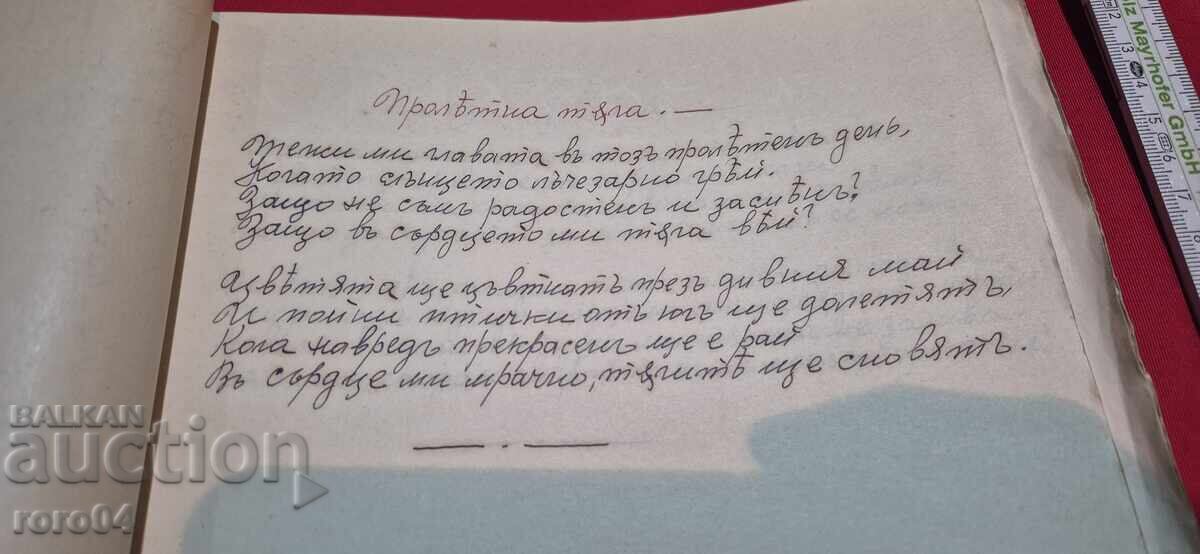 Пролѣтна тѫга. —
Тежи ми главата въ тозъ пролѣтенъ день,
Когато слънцето лъчезарно грѣй.
Защо не съмъ радостенъ и засмѣнъ?
Защо въ сърдцето ми тѫга вѣй?
Цвѣтята ще цъвтнатъ презъ дивния май
И пойни птички отъ югъ ще долетятъ,
Кога навредъ прекрасенъ ще е рай
Въ сърдце ми мрачно, тѫгитѣ ще сновятъ.
BALKAN
auction
roro04
lz Mayrhofer GmbH
2
3
4
5
6
7
12
13
14
15
16
17